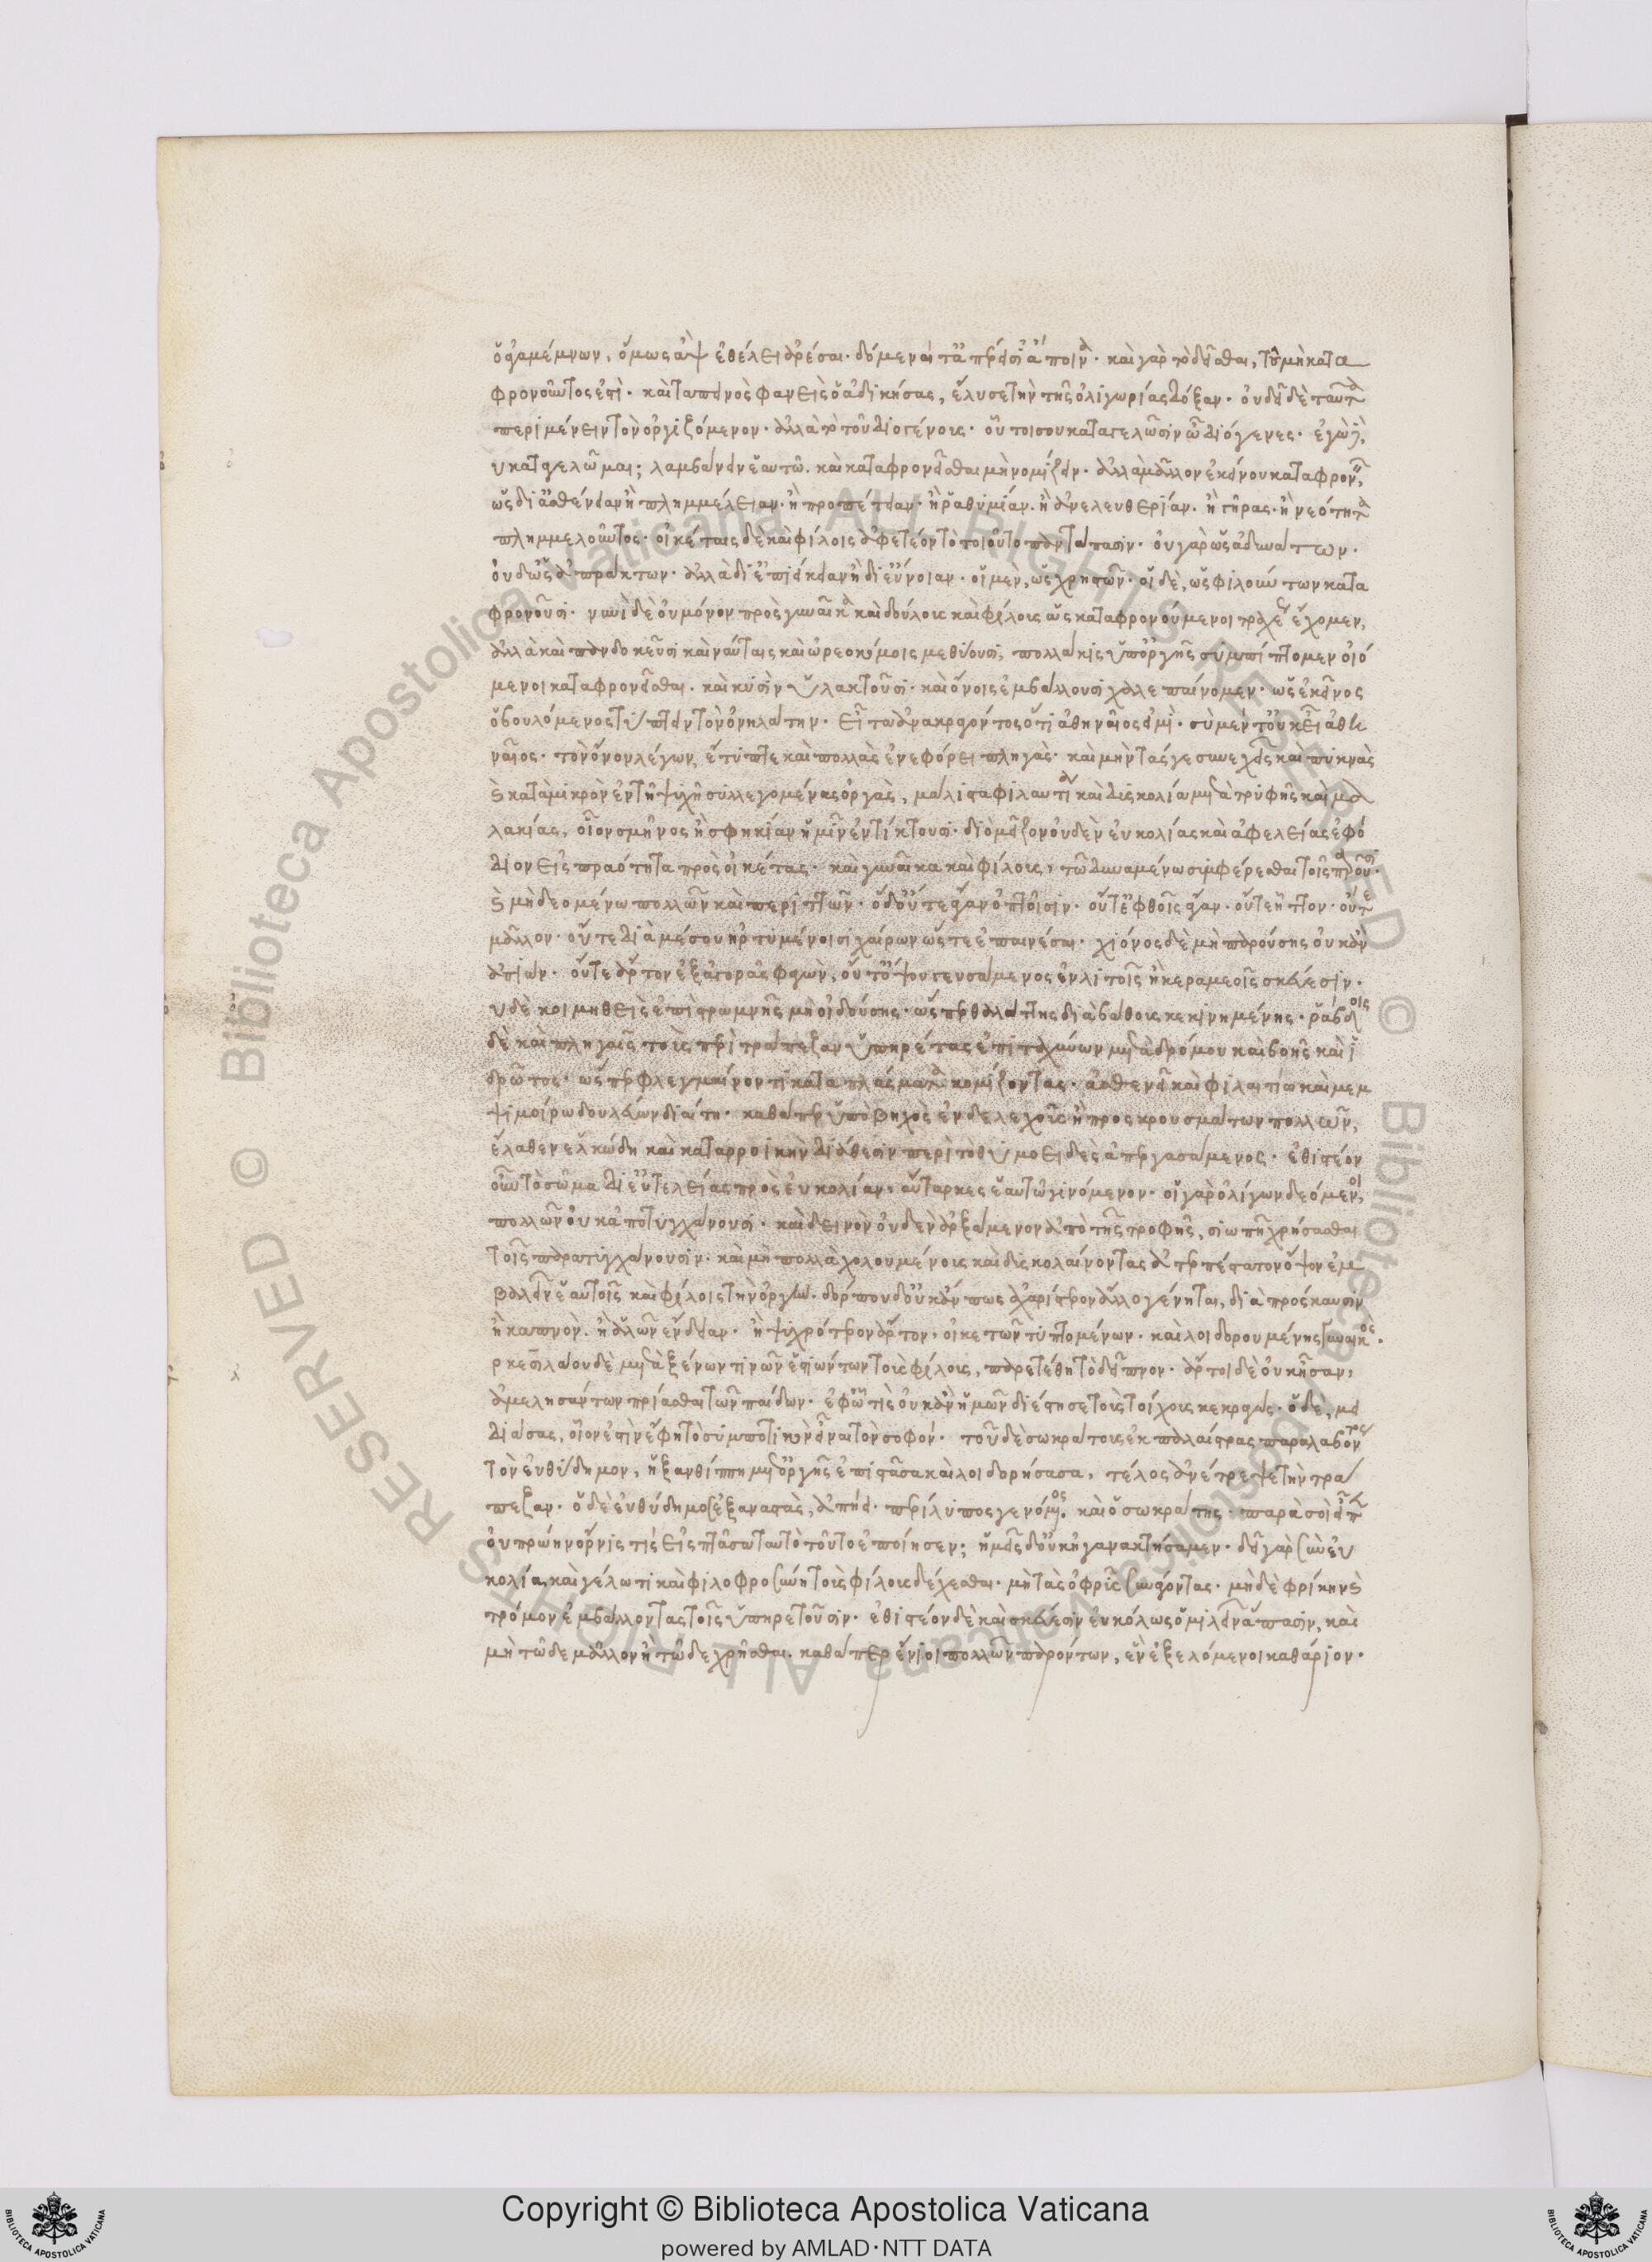 ὁ ἀγαμέμνων, ὅμως ἂψ ἐθέλει ἀρέσαι. δόμεναί τ' ἀπερείσι' ἄποινα. καὶ γὰρ τὸ δεῖσθαι, τοῦ μὴ κατα
φρονοῦντος ἐστὶ. καὶ ταπεινὸς φανεὶς ὁ ἀδικήσας, ἔλυσε τὴν τῆς ὀλιγωρίας δόξαν. οὐ δεῖ δὲ ταῦτα
περιμένειν τὸν ὀργιζόμενον. ἀλλὰ τὸ τοῦ διογένους. οὗτοι σου καταγελῶσιν ὦ διόγενες. ἐγὼ δὲ
υ καταγελῶμαι; λαμβάνειν ἑαυτῶ. καὶ καταφρονεῖσθαι μὴ νομίζειν. ἀλλὰ μᾶλλον ἐκείνου καταφρονεῖν,
ὡς δι' ἀσθένειαν ἢ πλημμέλειαν. ἢ προπέτειαν. ἢ ῥαθυμίαν. ἢ ἀνελευθερίαν. ἢ γῆρας. ἢ νεότητα
πλημμελοῦντος. οἰκέταις δὲ καὶ φίλοις ἀφετέον τὸ τοιοῦτο παντάπασιν. οὐ γὰρ ὡς ἀδυνάτων.
οὐδ' ὡς ἀπράκτων. ἀλλὰ δι' ἐπιείκειαν ἢ δι' εὔνοιαν. οἱ μὲν, ὡς χρηστῶν. οἱ δὲ, ὡς φιλούντων κατα
φρονοῦσι. νυνὶ δὲ οὐ μόνον πρὸς γυναῖκα καὶ δούλοις καὶ φίλοις ὡς καταφρονούμενοι τραχέως ἔχομεν,
ἀλλὰ καὶ πανδοκεῦσι καὶ ναύταις καὶ ὀρεοκόμοις μεθύουσι, πολλάκις ὑπ' ὀργῆς συμπίπτομεν οἰό
μενοι καταφρονεῖσθαι. καὶ κυσὶν ὑλακτοῦσι. καὶ ὄνοις ἐμβάλλουσι χαλεπαίνομεν. ὡς ἐκεῖνος
ὁ βουλόμενος τύπτειν τὸν ὀνηλάτην. εἶτ' ἀνακραγόντος ὅτι ἀθηναῖος εἰμὶ. σὺ μὲν τ' οὐκ εἶ ἀθη
ναῖος. τὸν ὄνον λέγων, ἔτυπτε καὶ πολλὰς ἐνεφόρει πληγὰς. καὶ μὴν τάς γε συνεχεῖς καὶ πυκνὰς
καὶ κατὰ μικρὸν ἐν τῆ ψυχῆ συλλεγομένας ὀργὰς, μάλιστα φιλαυτία καὶ δυσκολία μετὰ τρυφῆς καὶ μα
λακίας, οἷον σμῆνος ἢ σφηκίαν ἡμῖν ἐντίκτουσι. διὸ μεῖζον οὐδὲν εὐκολίας καὶ ἀφελείας ἐφό
διον εἰς πραότητα πρὸς οἰκέτας. καὶ γυναῖκα καὶ φίλους, τῶ δυναμένω συμφέρεσθαι τοῖς παροῦσι.
καὶ μὴ δεομένω πολλῶν καὶ περιττῶν. ὁ δ' οὔτε γὰν ὀπτοῖσιν. οὔτε ἑφθοῖς γὰν. οὔτε ἧττον. οὔτε
μᾶλλον. οὔτε διὰ μέσου ἠρτυμένοισι χαίρων ὥστε ἐπαινέσαι. χιόνος δὲ μὴ παρούσης οὐκ ἂν
πιὼν. οὔτε ἄρτον ἐξ ἀγορᾶς φαγὼν, οὔτ' ὄψου γευσάμενος ἐν λιτοῖς ἢ κεραμεοῖς σκεύεσιν.
υδὲ κοιμηθεὶς ἐπὶ στρωμνῆς μὴ οἰδούσης. ὥσπερ θαλάττης διὰ βάθους κεκινημένης. ῥάβδοις
δὲ καὶ πληγαῖς τοὺς περὶ τράπεζαν ὑπηρέτας ἐπιταχύνων μετὰ δρόμου καὶ βοῆς καὶ ἱ
δρῶτος. ὥσπερ φλεγμαίνοντι καταπλάσματα κομίζοντας. ἀσθενεῖ καὶ φιλαιτίω καὶ μεμ
ψιμοίρω δουλεύων διαίτη. καθάπερ ὑπὸ βηχὸς ἐνδελεχοῦς ἢ προσκρουσμάτων πολλῶν,
ἔλαθεν ἑλκώδη καὶ καταρροικὴν διάθεσιν περὶ τὸ θυμοειδὲς ἀπεργασάμενος. ἐθιστέον
οὖν τὸ σῶμα δι' εὐτελείας πρὸς εὐκολίαν, αὔταρκες ἑαυτῶ γινόμενον. οἱ γὰρ ὀλίγων δεόμενοι,
πολλῶν οὐκ ἀποτυγχάνουσι. καὶ δεινὸν οὐδὲν ἀρξάμενον ἀπὸ τῆς τροφῆς, σιωπῆ χρήσασθαι
τοῖς παρατυγχάνουσιν. καὶ μὴ πολλὰ χολουμένοις καὶ δυσκολαίνοντας ἀτερπέστατον ὄψον ἐμ
βαλεῖν ἑαυτοῖς καὶ φίλοις τὴν ὀργήν. δόρπου δ' οὐκ ἄν πως ἀχαρίστερον ἄλλο γένηται, διὰ πρόσκαυσιν
ἢ καπνὸν. ἢ ἁλῶν ἔνδειαν. ἢ ψυχρότερον ἄρτον. οἰκετῶν τυπτομένων. καὶ λοιδορουμένης γυναικός.
ρκεσιλάου δὲ μετὰ ξένων τινῶν ἑστιώντων τοὺς φίλους, παρετέθη τὸ δεῖπνον. ἄρτοι δὲ οὐκ ἦσαν,
ἀμελησάντων πρίασθαι τῶν παίδων. ἐφ' ὧ τίς οὐκ ἂν ἡμῶν διέστησε τοὺς τοίχους κεκραγώς. ὁ δὲ, μει
διάσας, οἷόν ἐστὶν ἔφη τὸ συμποτικὸν εἶναι τὸν σοφόν. τοῦ δὲ σωκράτους ἐκ παλαίστρας παραλαβόντος
τὸν εὐθύδημον, ἡ ξανθίππη μετ' ὀργῆς ἐπιστᾶσα καὶ λοιδορήσασα, τέλος ἀνέτρεψε τὴν τρά
πεζαν. ὁ δὲ εὐθύδημος ἐξαναστὰς, ἀπήει περίλυπος γενόμενος. καὶ ὁ σωκράτης. παρὰ σοὶ δ' εἶπεν
οὐ πρώην ὄρνις τίς εἰσπτᾶσα ταὐτὸ τοῦτο ἐποίησεν; ἡμεῖς δ' οὐκ ἠγανακτήσαμεν. δεῖ γὰρ σὺν εὐ
κολία, καὶ γέλωτι καὶ φιλοφροσύνη τοὺς φίλους δέχεσθαι. μὴ τὰς ὀφρῦς συνάγοντας. μὴ δὲ φρίκην καὶ
τρόμον ἐμβάλλοντας τοῖς ὑπηρετοῦσιν. ἐθιστέον δὲ καὶ σκεύεσιν εὐκόλως ὁμιλεῖν ἅπασιν, καὶ
μὴ τῶδε μᾶλλον ἢ τῶδε χρῆσθαι. καθάπερ ἔνιοι πολλῶν παρόντων, ἓν ἐξελόμενοι καθάριον.
Copyright © Biblioteca Apostolica Vaticana
powered by AMLAD·NTT DATA